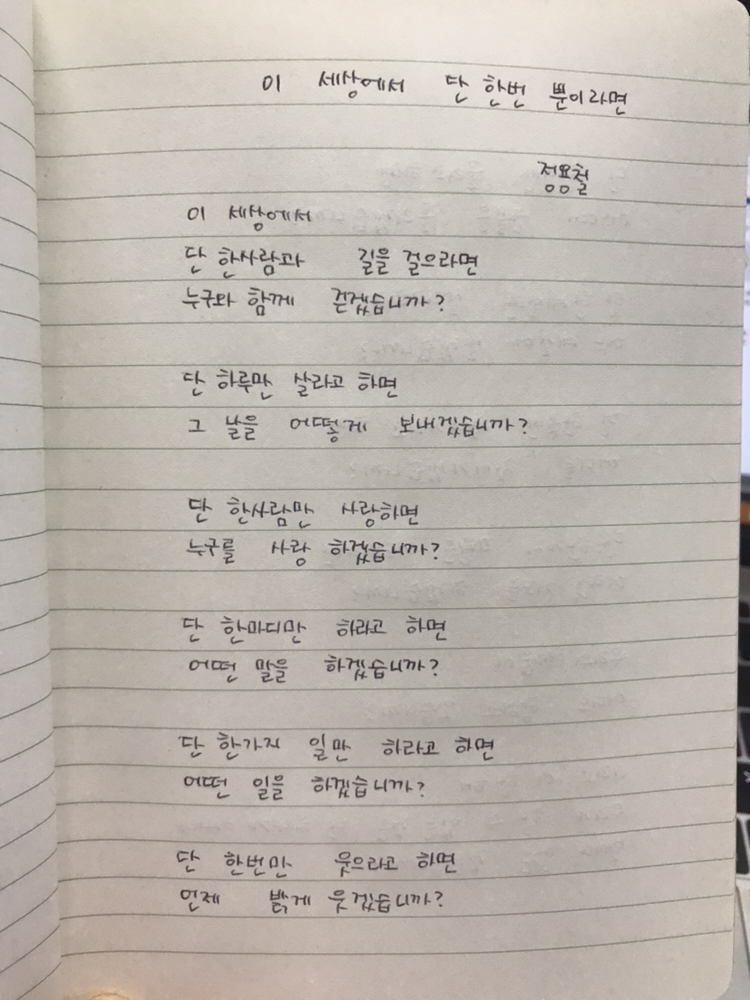 이 세상에서 단 한번 뿐이라면
정용철
이 세상에서
단 한사람과 길을 걸으라면
누구와 함께 걷겠습니까?
단 하루만 살라고 하면
그 날을 어떻게 보내겠습니까?
단 한사람만 사랑하면
누구를 사랑 하겠습니까?
단 한마디만 하라고 하면
어떤 말을 하겠습니까?
단 한가지 일만 하라고 하면
어떤 일을 하겠습니까?
단 한번만 웃으라고 하면
언제 밝게 웃겠습니까?